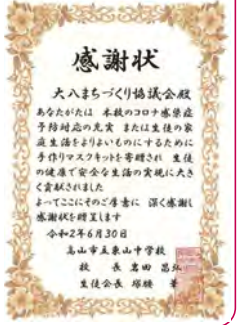 感謝状
大八まちづくり協議会殿
あなたがたは 本校のコロナ感染症
予防対応の充実 または生徒の家
庭生活をよりよいものにするために
手作りマスクキットを寄贈され 生徒
の健康で安全な生活の実現に大き
く貢献されました
よってここにそのご厚意に 深く感謝し
感謝状を贈呈します
令和2年6月30日
高山市立東山中学校
校 長 岩田 昌
生徒会長